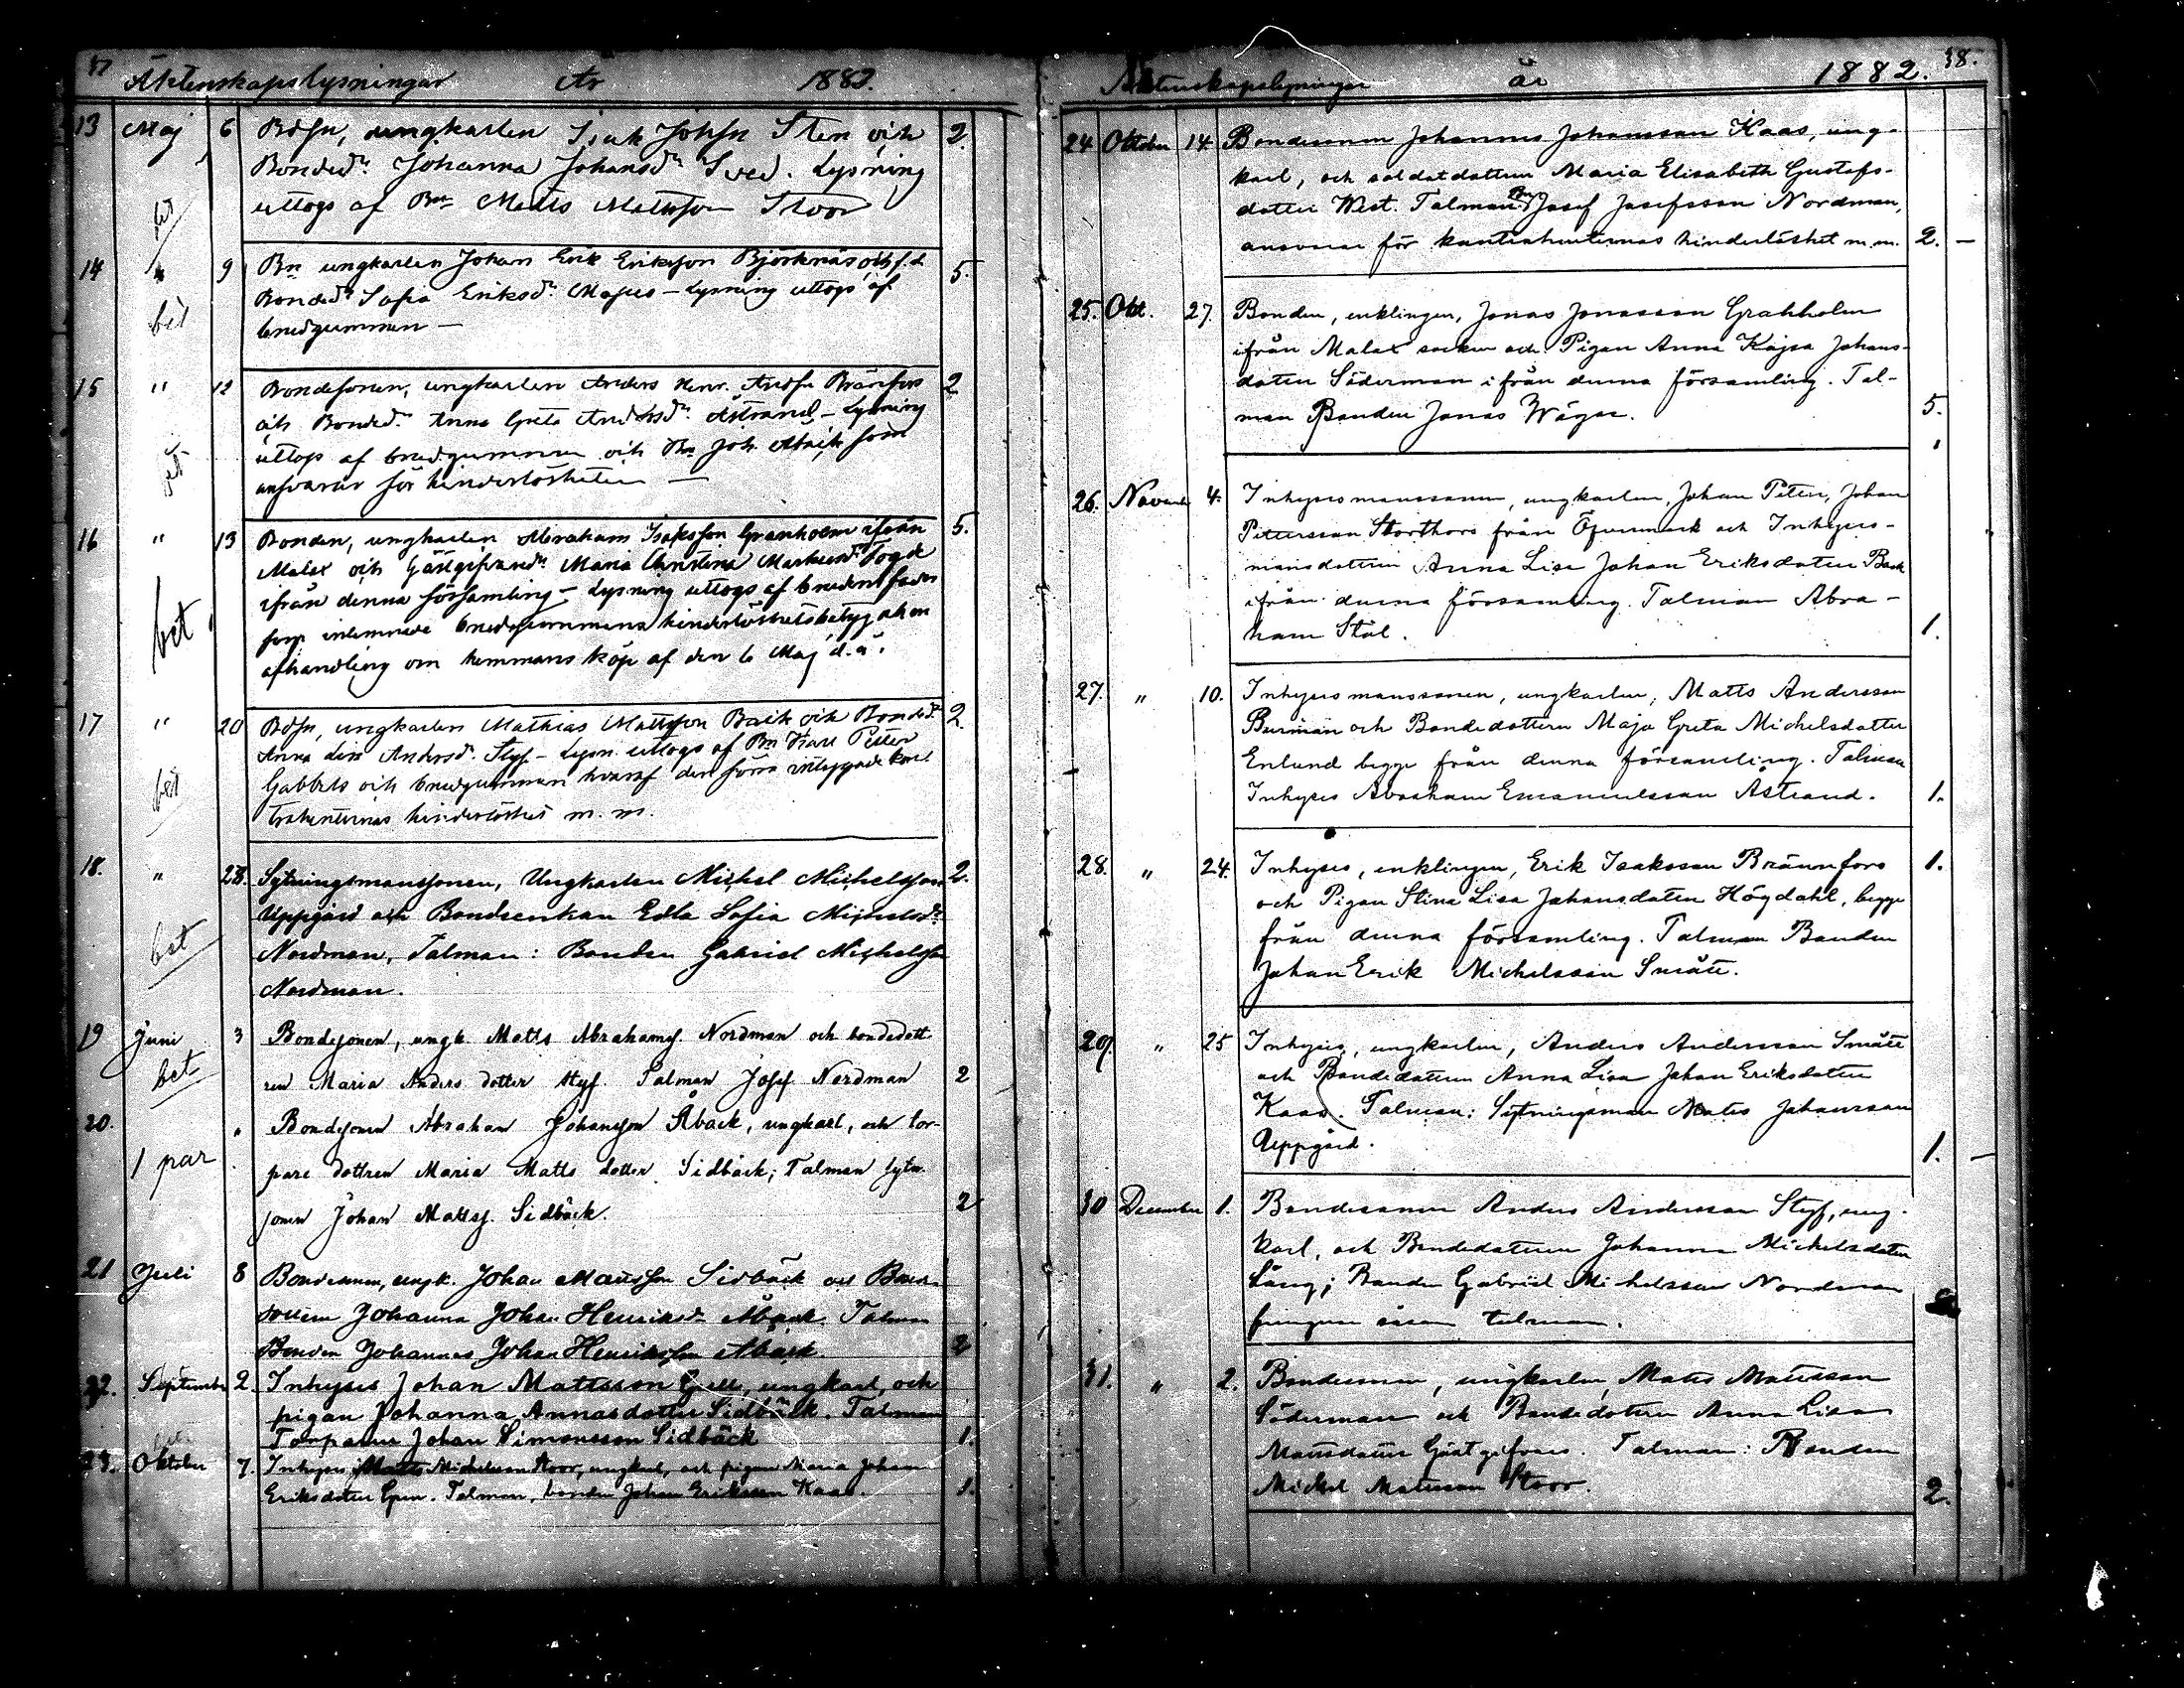 37
Äktenskapslysningar År 1882.
13 Maj 6 Bdsn, ungkarlen Isak Johsn Sten och 2
Bonded:r Johanna Johansd:r Sved. Lysning
uttogs af Bn Matts Mattsson Stoor
bet
14 " 9 Bn ungkarlen Johan Erik Eriksson Björknäs och f.d. 5.
Bonded:r Sofia Eriksd:r – Lysning uttogs af
brudgummen –
bet
15 " 12 Bondesonen, ungkarlen Anders Henr. Andsn Brännfors 2
och Bonded:r Anna Greta Andersd:r Åstrand – Lysning
uttogs af brudgummen och Bn Joh. Åback som
ansvarar för hinderlösheten –
bet
16 " 13 Bonden, ungkarlen Abraham Isaksson Granholm ifrån 5.
Malax och Gästgifvared:r Maria Christina Markusd:r Fogde
ifrån denna församling – Lysning uttogs af brudens fader
som inlemnade brudgummens hinderlöshetsbetyg
afhandling om hemmans köp af den 6 Maj d.å.
bet
17 " 20 Bdsn, ungkarlen Mathias Mattsson Back och Bonded:r 2
Anna Lisa Andersd:r Styf – Lysn. uttogs af Bn Karl Petter
Gabbels och brudgumman hvaraf den förra intygade kon-
trahenternas hinderlöshet m. m.
bet
18. " 28. Sytningsmanssonen, Ungkarlen Michel Michelsson 2.
Uppgård och Bondeenkan Edla Sofia Michelsd:r
Nordman, Talman: Bonden Gabriel Michelsson
Nordman.
bet
19 Juni 3 Bondesonen, ungk. Matts Abrahams. Nordman och bondedott-
ren Maria Anders dotter Styf. Talman Josef Nordman 2
bet
20. " Bondesonen Abraham Johansson Åback, ungkarl, och tor-
pare dottren Maria Matts dotter Sidbäck; Talman sytn.
sonen Johan Mattss. Sidbäck. 2
1 par
21 Juli 8 Bondesonen, ungk. Johan Mattsson Sidbäck och Bonde-
dottern Johanna Johan Henriksd:r Åback. Talman
Bonden Johannes Johan Henriksson Åback. 2
22. September 2. Inhyses Johan Mattsson Gull, ungkarl, och
pigan Johanna Annasdotter Sidbäck. Talman
Torparen Johan Simonsson Sidbäck 1.
23. Oktober 7. Inhyses Matts Michelsson Stoor, ungkarl, och pigan Maria Johan
Eriksdotter Talman, bonden Johan Eriksson Kaas. 1.
38.
Äktenskapslysningar år 1882.
24. Oktober 14. Bondesonen Johannes Johansson Kaas, ung-
karl, och soldatdottern Maria Elisabeth Gustafs-
dotter West. Talman: Bn Josef Josefsson Nordman,
ansvarar för kontrahenternas hinderlöshet m.m. 2. –
25. Okt. 27. Bonden, enklingen, Jonas Jonasson Grahholm
ifrån Malax socken och Pigan Anna Kajsa Johans-
dotter Söderman ifrån denna församling. Tal-
man Bonden Jonas Wägar. 5.
26. Novemb. 4. Inhysesmanssonen, ungkarlen, Johan Petter, Johan
Pettersson Storthors från Öfvermark och Inhyses-
mansdottern Anna Lisa Johan Eriksdotter Back
ifrån denna församling. Talman Abra-
ham Stål. 1.
27. " 10. Inhysesmanssonen, ungkarlen, Matts Andersson
Burman och Bondedottern Maja Greta Michelsdotter
Enlund begge från denna församling. Talman
Inhyses Abraham Emanuelsson Åstrand. 1.
28. " 24. Inhyses, enklingen, Erik Isaksson Brännfors 1.
och Pigan Stina Lisa Johansdotter Högdahl, begge
från denna församling. Talman Bonden
Johan Erik Michelsson Smått.
29. " 25 Inhyses, ungkarlen, Anders Andersson Smått
och Bondedottern Anna Lisa Johan Eriksdotter
Kaas. Talman: Sytningsman Matts Johansson
Uppgård. 1. –
30 December 1. Bondesonen Anders Andersson Styf, ung-
karl, och Bondedottern Johanna Michelsdotter
Lång; Bonden Gabriel Michelsson Nordman
fungerar såsom talman.
31. " 2. Bondesonen, ungkarlen Matts Mattsson
Söderman och Bondedottern Anna Lisa
Mattsdotter Gästgifvars. Talman: Bonden
Michel Mattsson Stoor. 2.